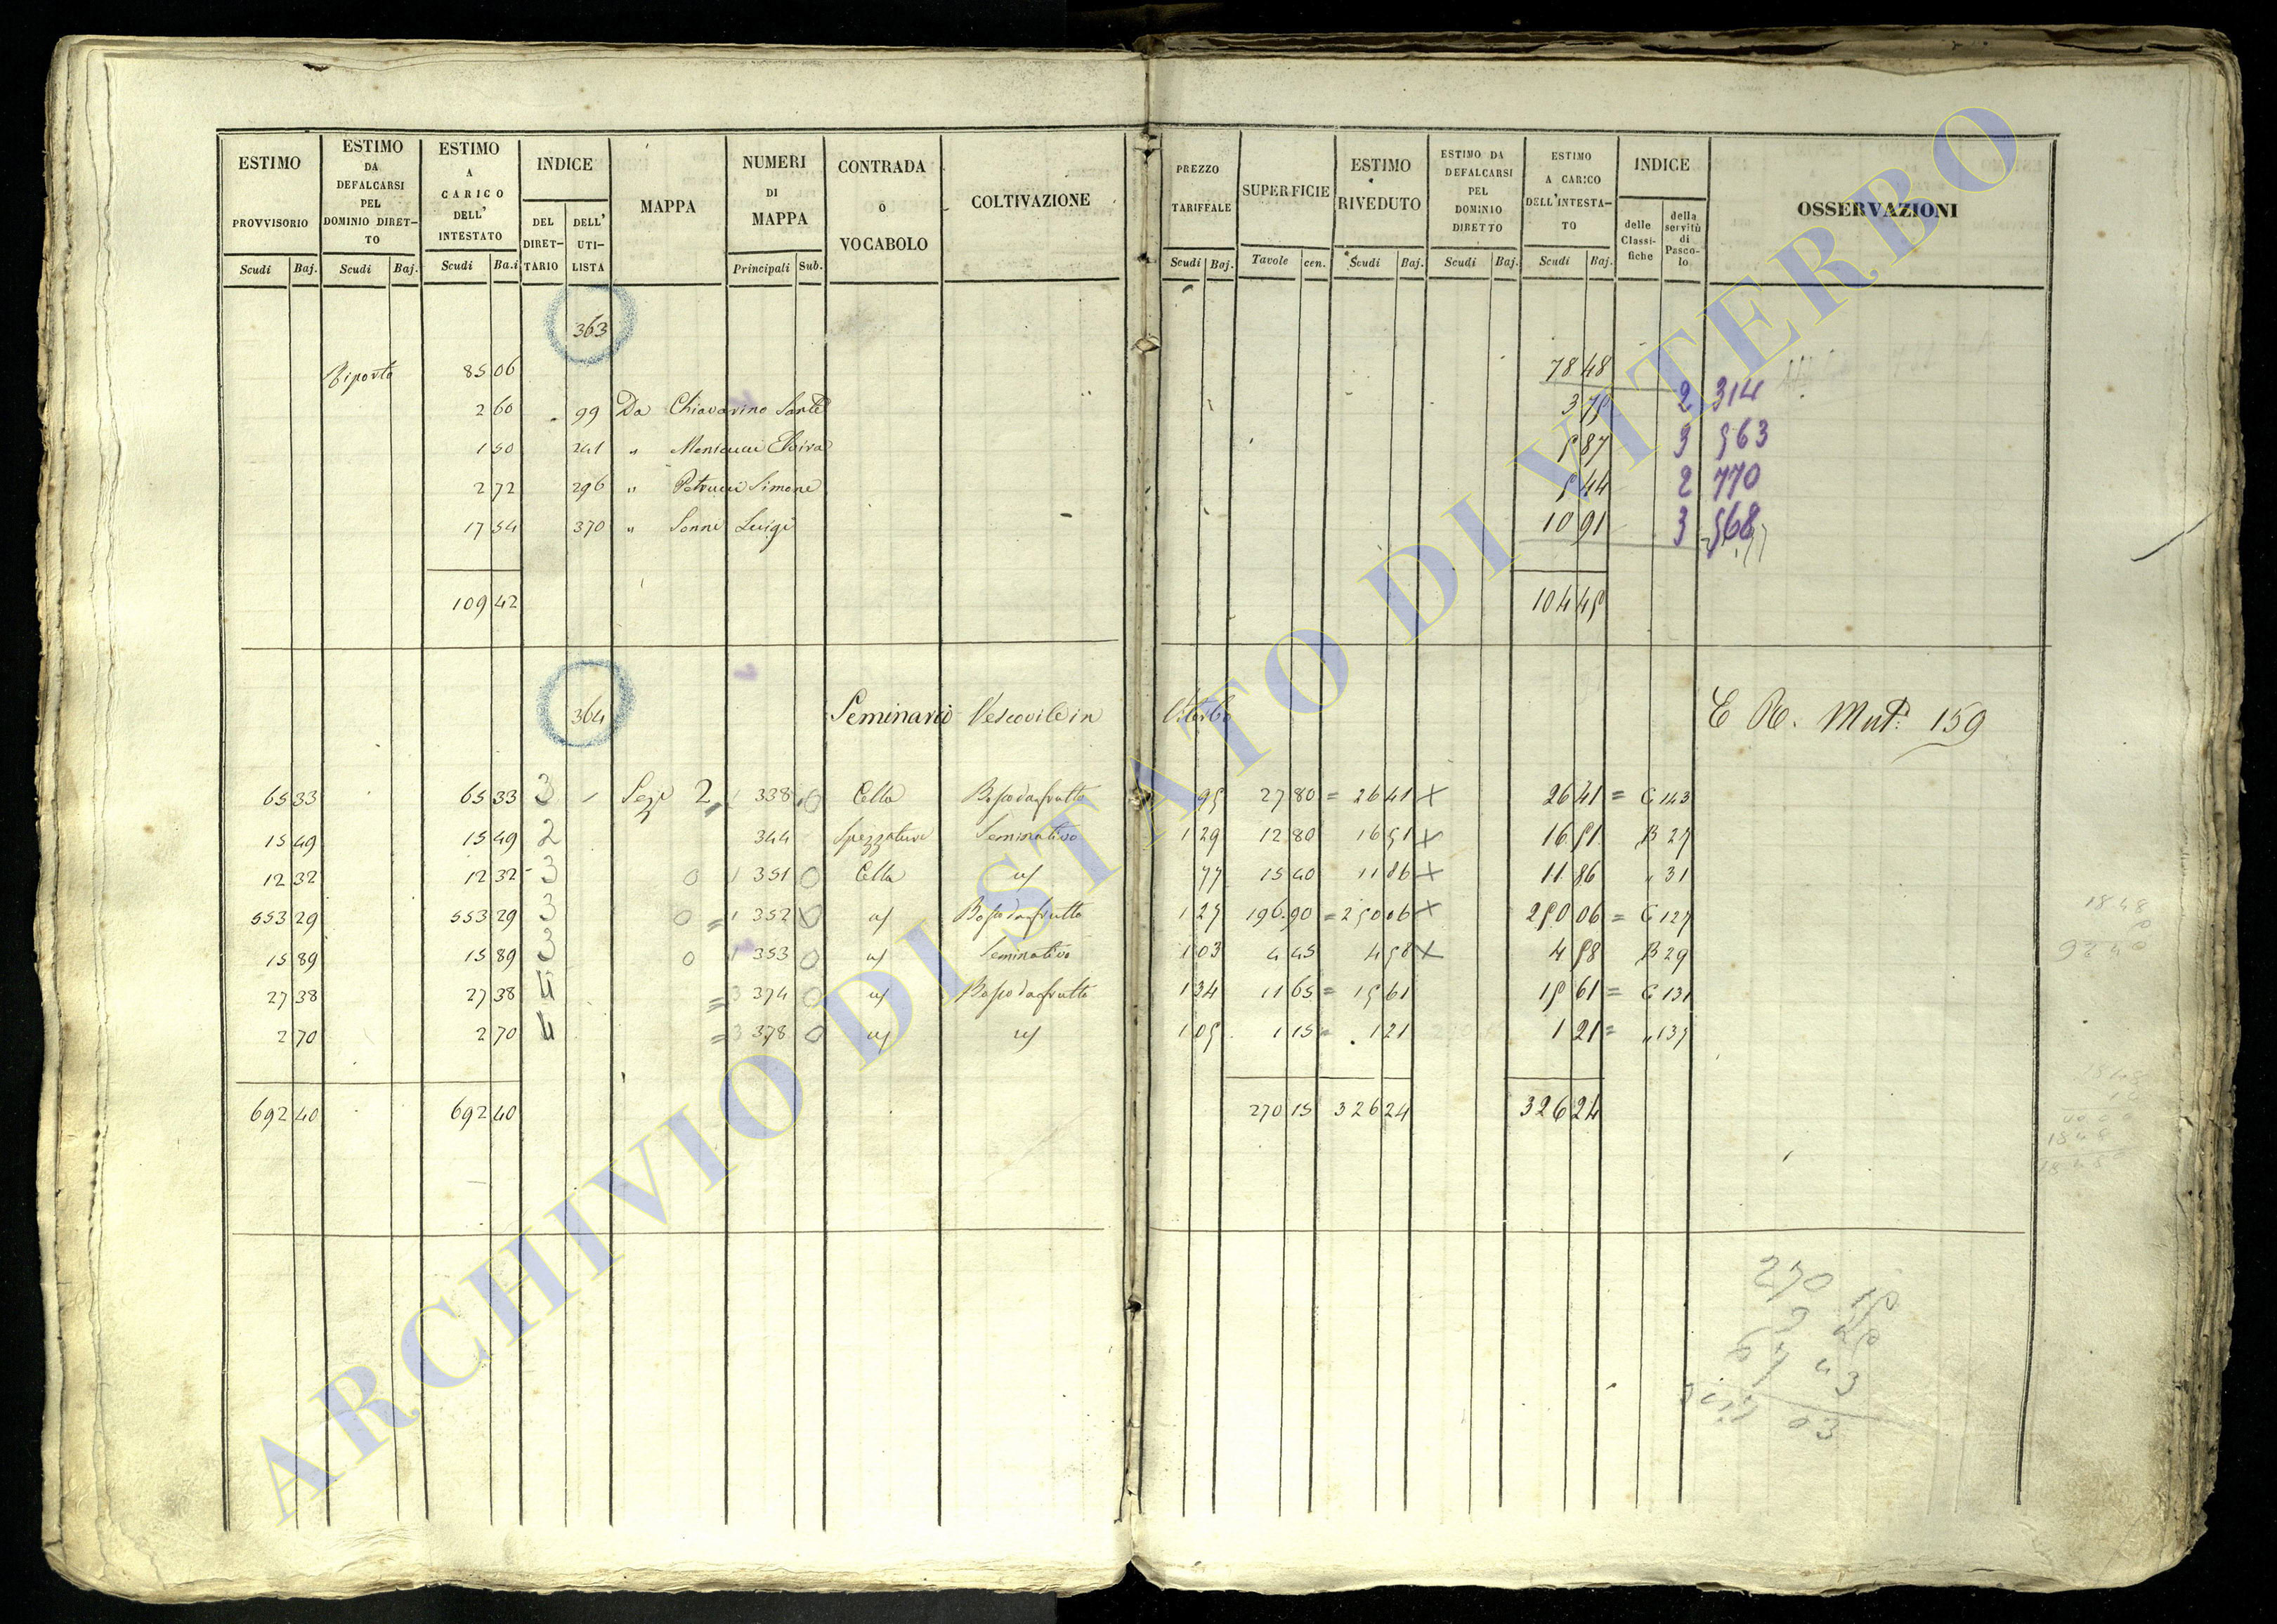 ESTIMO PROVVISORIO Scudi Baj. ESTIMO DA DEFALCARSI PEL DOMINIO DIRET-TO Scudi Baj. ESTIMO A CARICO DELL' INTESTATO Scudi Ba.i INDICE DEL DIRET-TARIO DELL' UTI-LISTA MAPPA NUMERI DI MAPPA Principali Sub. CONTRADA O VOCABOLO COLTIVAZIONE PREZZO TARIFFALE Scudi Baj. SUPERFICIE Tavole cen. ESTIMO RIVEDUTO Scudi Baj. ESTIMO DA DEFALCARSI PEL DOMINIO DIRETTO Scudi Baj. ESTIMO A CARICO DELL'INTESTA-TO Scudi Baj. INDICE delle Classi-fiche della servitù di Pasco-lo OSSERVAZIONI
363
Riporto 85 06 78 48
2 60 99 Da Chiavarino Sante 3 75 2 314
1 50 241 " Mensucci Elvira 5 87 3 563
2 72 296 " Petrucci Simone 5 44 2 770
17 54 370 " Sonni Luigi 10 91 3 568
109 42 104 45
364 Seminario Vescovile in Viterbo E R. Mut: 159
65 33 65 33 3 Sez 2 1 338 0 Cella Bosco da frutto 95 27 80 = 26 41 x 26 41 = C 143
15 49 15 49 2 344 Spezzature Seminativo 1 29 12 80 16 51 x 16 51 B 27
12 32 12 32 3 0 1 351 0 Cella 77 15 40 11 86 x 11 86 " 31
553 29 553 29 3 0 = 1 352 0 Bosco da frutto 1 27 196 90 = 250 06 x 250 06 = C 127
15 89 15 89 3 0 1 353 0 Seminativo 1 03 4 45 4 58 x 4 58 B 29
27 38 27 38 = 3 374 0 Bosco da frutto 1 34 11 65 = 15 61 15 61 = C 131
2 70 2 70 = 3 378 0 1 05 1 15 = 1 21 1 21 = " 137
692 40 692 40 270 15 326 24 326 24
270 15
67 43
03
1848
9240
1848
ARCHIVIO DI STATO DI VITERBO